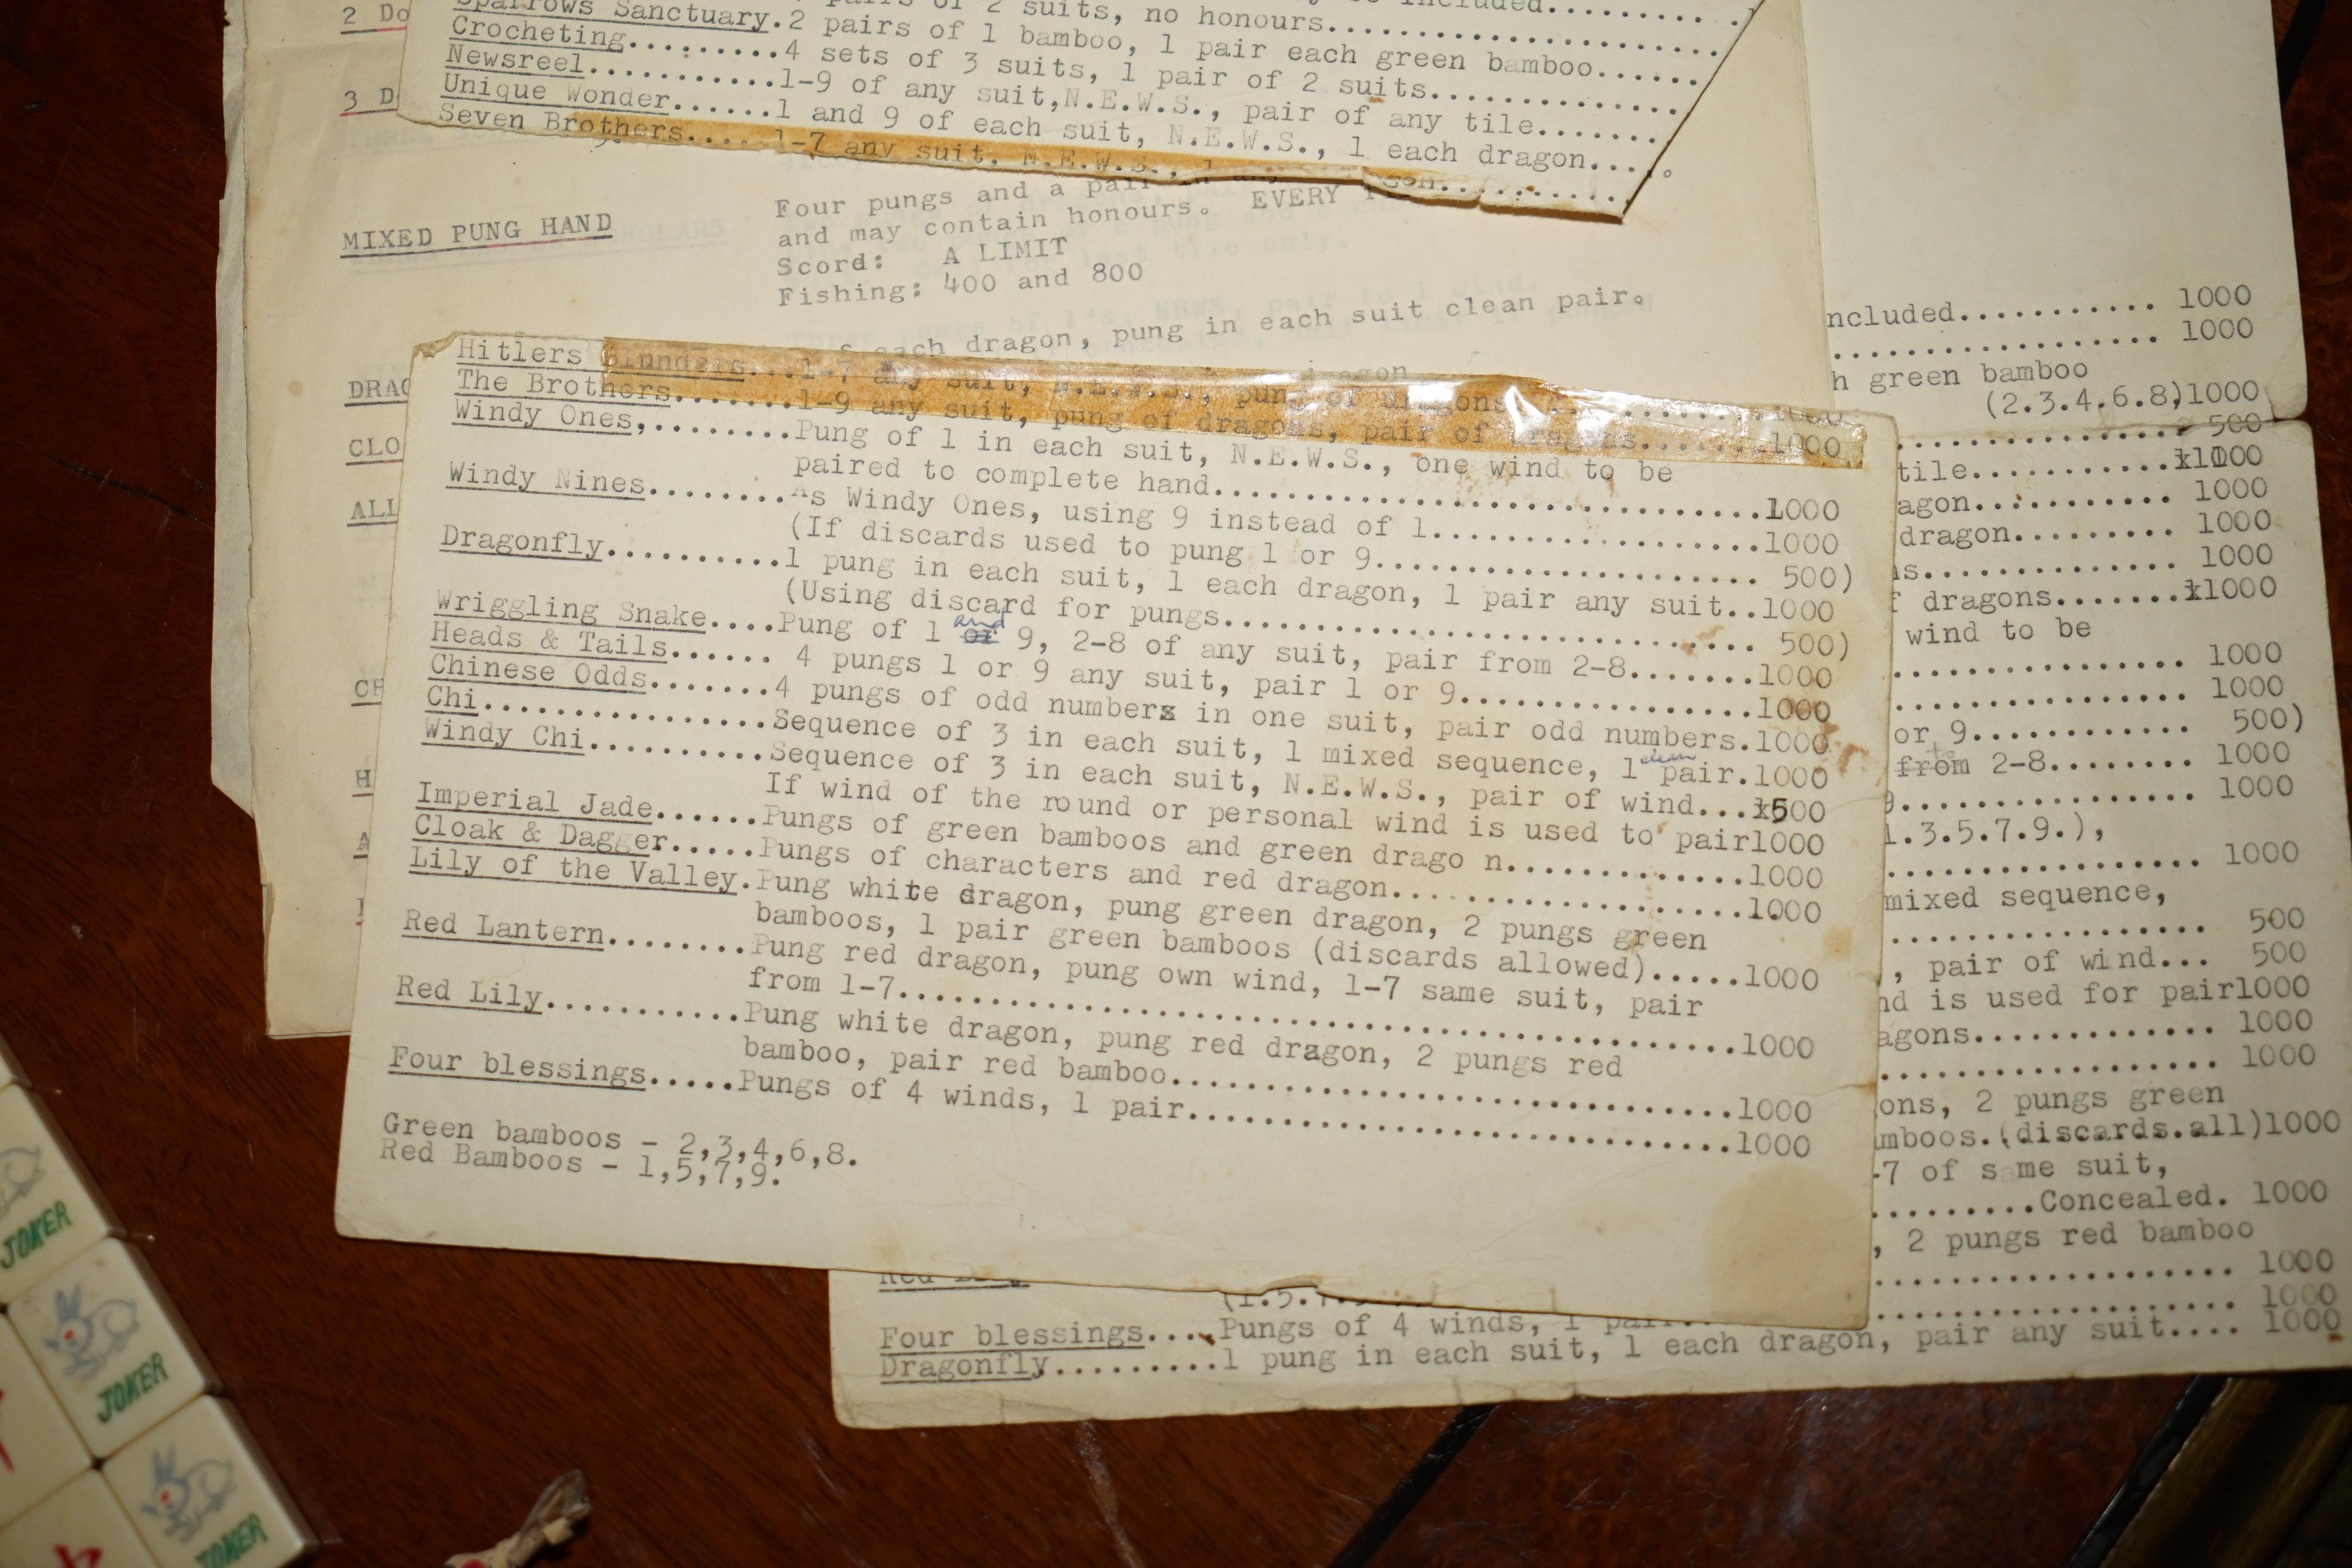 2 Do
3 D
suits, no honours
Sparrows Sanctuary.2 pairs of 1 bamboo, 1 pair each green bamboo......
Crocheting.........4 sets of 3 suits, 1 pair of 2 suits..............
Newsreel...........1-9 of any suit,N.E.W.S., pair of any tile.......
Unique Wonder......1 and 9 of each suit, N.E.W.S., 1 each dragon.....
Seven Brothers.....1-7 any suit, N.E.W.S.,
MIXED PUNG HAND
Four pungs and a pair
and may contain honours. EVERY
Scord: A LIMIT
Fishing: 400 and 800
each dragon, pung in each suit clean pair.
DRAG
CLO
ALL
CH
H
A
Hitlers Blunders...1-7 any suit, N.E.W.S., pung of dragons 1000
The Brothers.......1-9 any suit, pung of dragons, pair of dragons.......1000
Windy Ones,........Pung of 1 in each suit, N.E.W.S., one wind to be
paired to complete hand..................................1000
Windy Nines........As Windy Ones, using 9 instead of 1...................1000
(If discards used to pung 1 or 9....................... 500)
Dragonfly..........1 pung in each suit, 1 each dragon, 1 pair any suit..1000
(Using discard for pungs............................... 500)
Wriggling Snake....Pung of 1 or and 9, 2-8 of any suit, pair from 2-8........1000
Heads & Tails...... 4 pungs 1 or 9 any suit, pair 1 or 9.................1000
Chinese Odds.......4 pungs of odd numbers in one suit, pair odd numbers.1000
Chi................Sequence of 3 in each suit, 1 mixed sequence, 1 clean pair.1000
Windy Chi..........Sequence of 3 in each suit, N.E.W.S., pair of wind...x500
If wind of the round or personal wind is used to pair1000
Imperial Jade......Pungs of green bamboos and green drago n..............1000
Cloak & Dagger.....Pungs of characters and red dragon....................1000
Lily of the Valley.Pung white dragon, pung green dragon, 2 pungs green
bamboos, 1 pair green bamboos (discards allowed).....1000
Red Lantern........Pung red dragon, pung own wind, 1-7 same suit, pair
from 1-7.................................................1000
Red Lily...........Pung white dragon, pung red dragon, 2 pungs red
bamboo, pair red bamboo..................................1000
Four blessings.....Pungs of 4 winds, 1 pair.................................1000
Green bamboos - 2,3,4,6,8.
Red Bamboos - 1,5,7,9.
ncluded........... 1000
.................. 1000
h green bamboo
(2.3.4.6.8)1000
.................. 500
tile............x1000
agon........... 1000
dragon......... 1000
ns.............. 1000
f dragons.......x1000
wind to be
................. 1000
................. 1000
or 9............ 500)
from to 2-8........ 1000
9................ 1000
1.3.5.7.9.),
.................. 1000
mixed sequence,
.................. 500
, pair of wind... 500
nd is used for pair1000
agons............. 1000
................... 1000
ons, 2 pungs green
mboos.(discards.all)1000
-7 of same suit,
..........Concealed. 1000
, 2 pungs red bamboo
.................... 1000
Four blessings....Pungs of 4 winds, 1 pair.................... 1000
Dragonfly.........1 pung in each suit, 1 each dragon, pair any suit.... 1000
JOKER
JOKER
JOKER